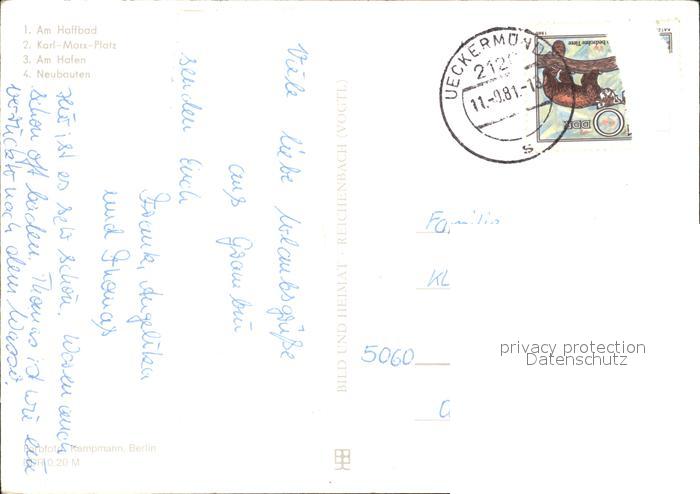 1. Am Haffbad
2. Karl-Marx-Platz
3. Am Hafen
4. Neubauten
Viele liebe Urlaubsgrüße
aus Grambin
senden Euch
Frank, Angelika
und Thomas
Hier ist es sehr schön. Waren auch
schon oft baden. Thomas ist wie ein
verrückt nach dem Wasser.
Kempmann, Berlin
0,20 M
BILD UND HEIMAT · REICHENBACH (VOGTL)
UECKERMÜND
212
11.-9.81.-1
s
DDR
Familie
KL
5060
privacy protection
Datenschutz